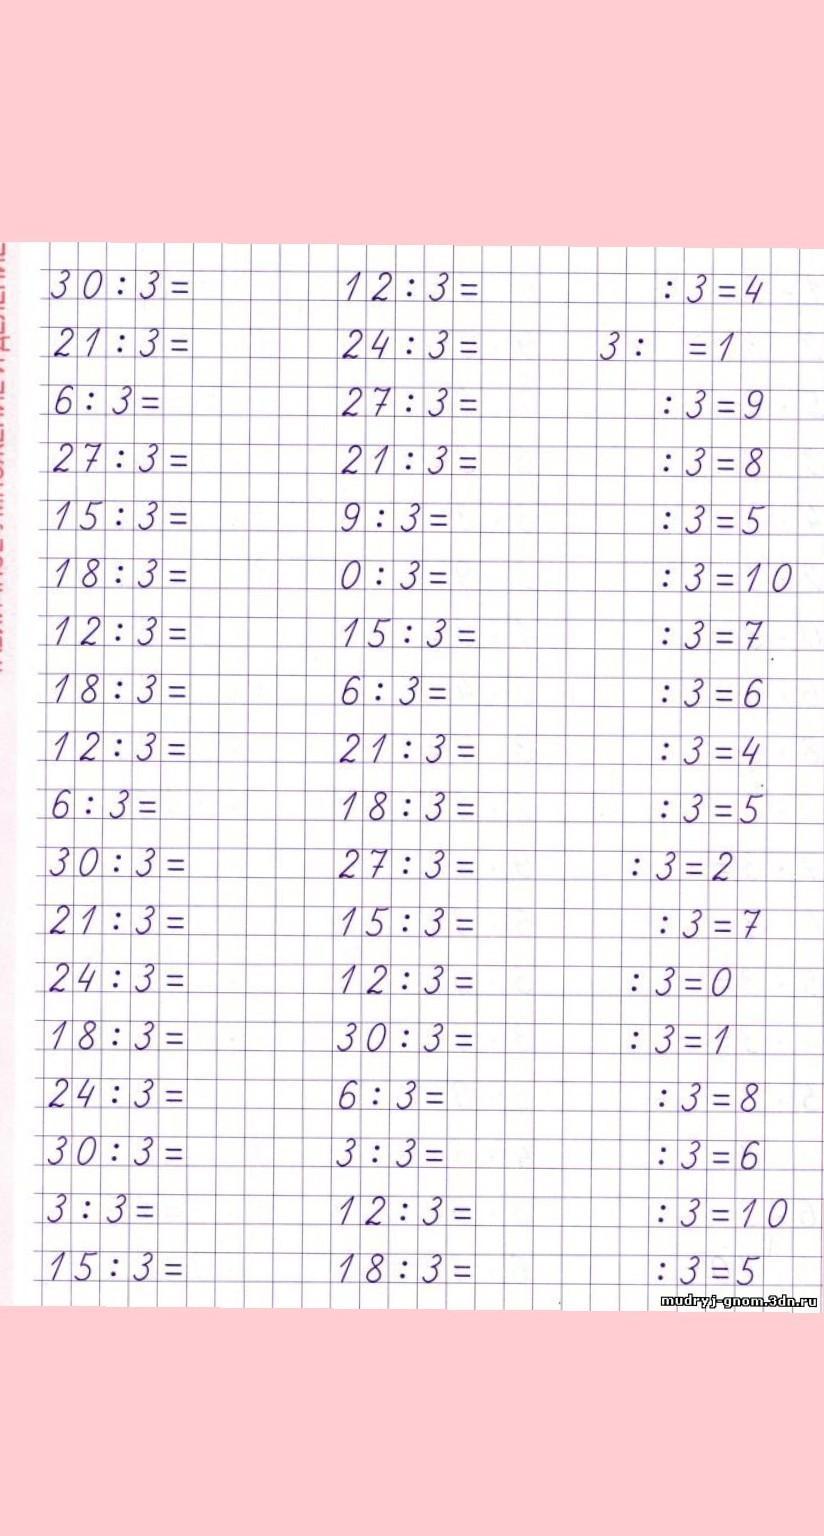 30:3= 12:3= :3=4
21:3= 24:3= 3: =1
6:3= 27:3= :3=9
27:3= 21:3= :3=8
15:3= 9:3= :3=5
18:3= 0:3= :3=10
12:3= 15:3= :3=7
18:3= 6:3= :3=6
12:3= 21:3= :3=4
6:3= 18:3= :3=5
30:3= 27:3= :3=2
21:3= 15:3= :3=7
24:3= 12:3= :3=0
18:3= 30:3= :3=1
24:3= 6:3= :3=8
30:3= 3:3= :3=6
3:3= 12:3= :3=10
15:3= 18:3= :3=5
mudryj-gnom.3dn.ru